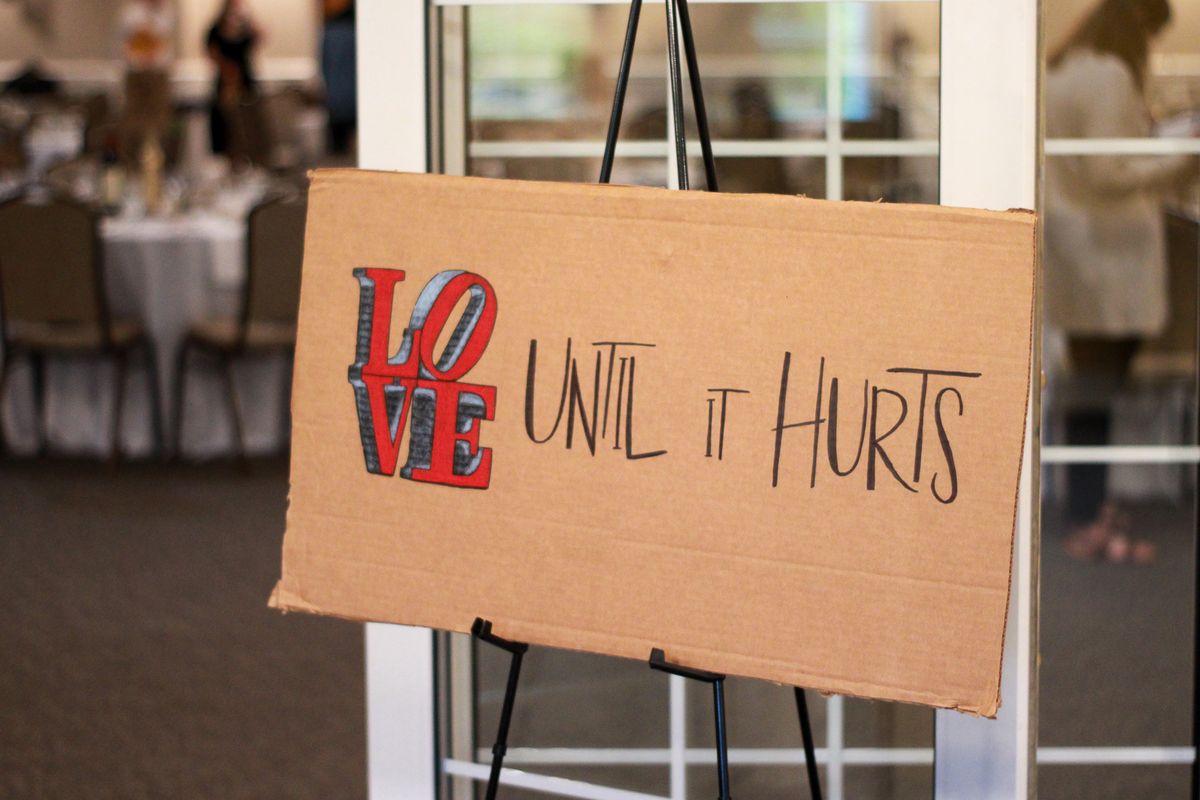 LOVE UNTIL IT HURTS